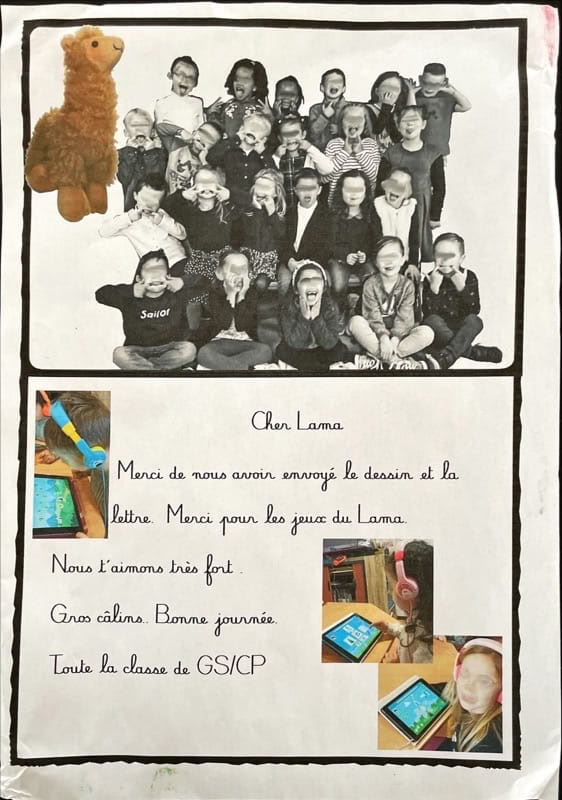 Sailor
Cher Lama
Merci de nous avoir envoyé le dessin et la
lettre. Merci pour les jeux du Lama.
Nous t'aimons très fort.
Gros câlins.. Bonne journée.
Toute la classe de GS/CP